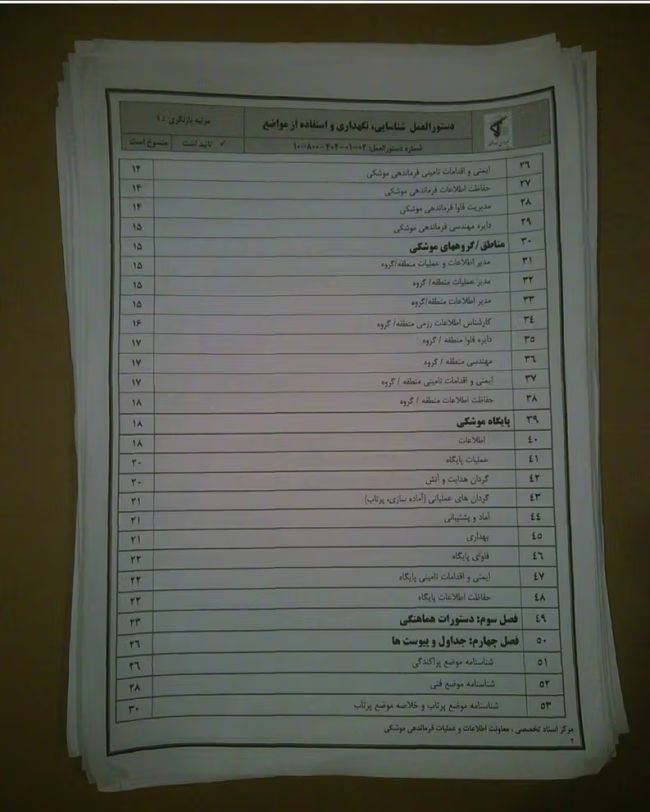 دستورالعمل شناسایی، نگهداری و استفاده از مواضع
مرتبه بازنگری : ۱
شماره دستورالعمل: ۰۲-۰۱-۴۰۴-۸۰۰-۱۰
✓ تائید است
منسوخ است
۲۶ ایمنی و اقدامات تامینی فرماندهی موشکی ۱۴
۲۷ حفاظت اطلاعات فرماندهی موشکی ۱۴
۲۸ مدیریت فاوا فرماندهی موشکی ۱۴
۲۹ دایره مهندسی فرماندهی موشکی ۱۵
۳۰ مناطق/گروههای موشکی ۱۵
۳۱ مدیر اطلاعات و عملیات منطقه/گروه ۱۵
۳۲ مدیر عملیات منطقه/ گروه ۱۵
۳۳ مدیر اطلاعات منطقه/گروه ۱۵
۳٤ کارشناس اطلاعات رزمی منطقه/ گروه ۱۶
۳۵ دایره فاوا منطقه / گروه ۱۷
۳۶ مهندسی منطقه / گروه ۱۷
۳۷ ایمنی و اقدامات تامینی منطقه / گروه ۱۷
۳۸ حفاظت اطلاعات منطقه / گروه ۱۸
۳۹ پایگاه موشکی ۱۸
٤۰ اطلاعات ۱۸
٤۱ عملیات پایگاه ۲۰
٤۲ گردان هدایت و آتش ۲۰
٤۳ گردان های عملیاتی (آماده سازی، پرتاب) ۲۱
٤٤ آماد و پشتیبانی ۲۱
٤۵ بهداری ۲۱
٤۶ فاوای پایگاه ۲۲
٤۷ ایمنی و اقدامات تامینی پایگاه ۲۲
٤۸ حفاظت اطلاعات پایگاه ۲۲
٤۹ فصل سوم: دستورات هماهنگی ۲۳
۵۰ فصل چهارم: جداول و پیوست ها ۲۶
۵۱ شناسنامه موضع پراکندگی ۲۶
۵۲ شناسنامه موضع فنی ۲۸
۵۳ شناسنامه موضع پرتاب و خلاصه موضع پرتاب ۳۰
مرکز اسناد تخصصی ، معاونت اطلاعات و عملیات فرماندهی موشکی
۲